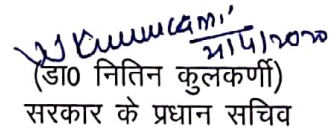 21/4/2020
(डा0 नितिन कुलकर्णी)
सरकार के प्रधान सचिव